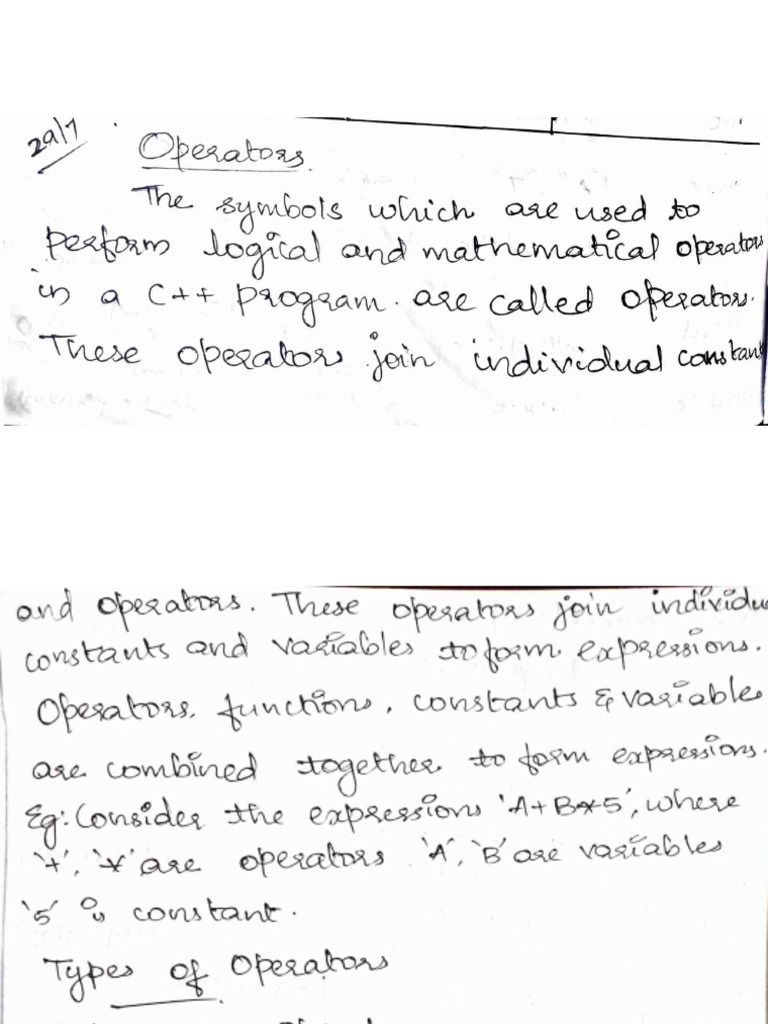 29/7
Operators.
The symbols which are used to
perform logical and mathematical operators
in a C++ program. are called operators.
These operators join individual constant
and operators. These operators join individu
constants and variables to form expressions.
Operators, functions, constants & variables
are combined together to form expressions.
Eg: Consider the expressions 'A+B*5', where
'+', '*' are operators 'A', 'B' are variables
'5' is constant.
Types of Operators